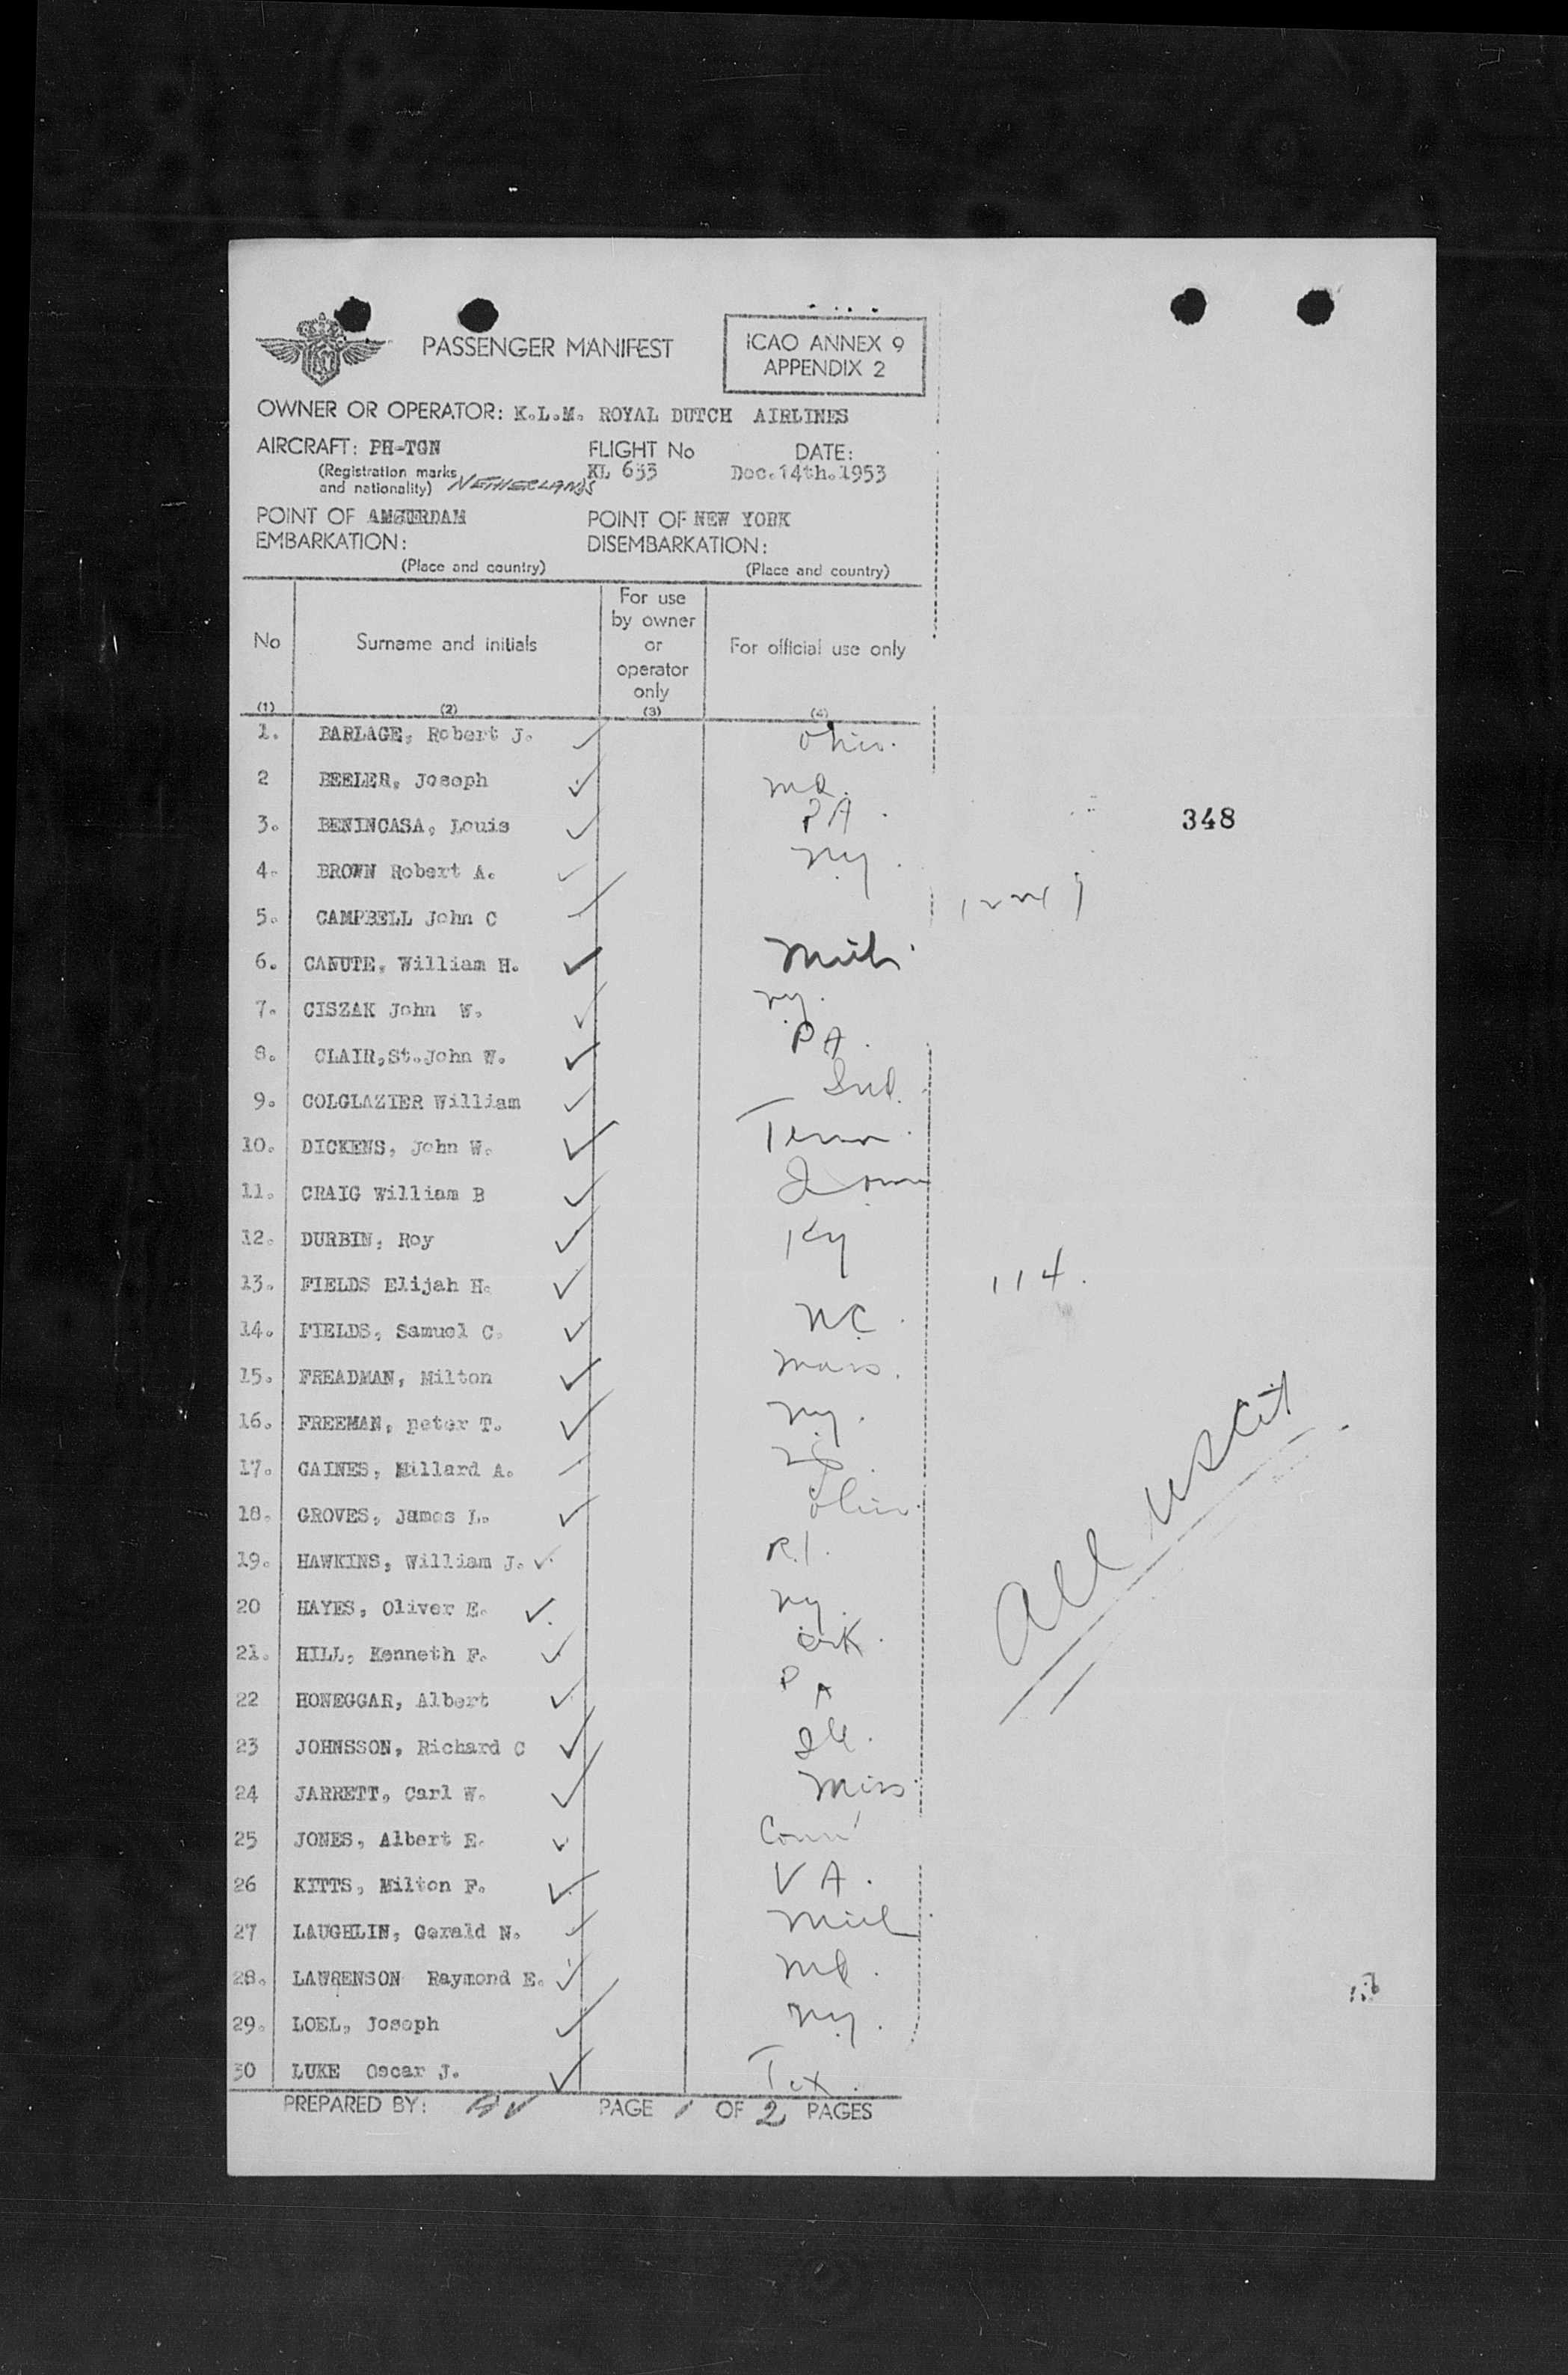 PASSENGER MANIFEST
ICAO ANNEX 9
APPENDIX 2
OWNER OR OPERATOR: K.L.M. ROYAL DUTCH AIRLINES
AIRCRAFT: PH-TGN FLIGHT No DATE:
(Registration marks KL 633 Dec.14th.1953
and nationality) NETHERLANDS
POINT OF AMSTERDAM POINT OF NEW YORK
EMBARKATION: DISEMBARKATION:
(Place and country) (Place and country)
No Surname and initials For use by owner or operator only For official use only
(1) (2) (3) (4)
1. BARLAGE, Robert J. Ohio.
2 BEELER, Joseph Md.
3. BENINCASA, Louis PA.
348
4. BROWN Robert A. NY.
5. CAMPBELL John C
6. CANUTE, William H. Mich.
7. CISZAK John W. NY.
8. CLAIR,St.John W. PA.
9. COLGLAZIER William Ind.
10. DICKENS, John W. Tenn.
11. CRAIG William B Iowa
12. DURBIN, Roy Ky
13. FIELDS Elijah H. 114.
14. FIELDS, Samuel C. N.C.
15. FREADMAN, Milton Mass.
16. FREEMAN, peter T. NY.
17. GAINES, Millard A.
18. GROVES, James L. Ohio.
19. HAWKINS, William J. R.I.
20 HAYES, Oliver E. NY.
21. HILL, Kenneth F. Ark.
22 HONEGGAR, Albert PA
23 JOHNSSON, Richard C Ill.
24 JARRETT, Carl W. Miss.
25 JONES, Albert E. Conn
26 KITTS, Milton F. VA.
27 LAUGHLIN, Gerald N. Mich
28. LAWRENSON Raymond E. Md.
29. LOEL, Joseph NY.
30 LUKE Oscar J. Tex.
All uscit
PREPARED BY: PAGE 1 OF 2 PAGES